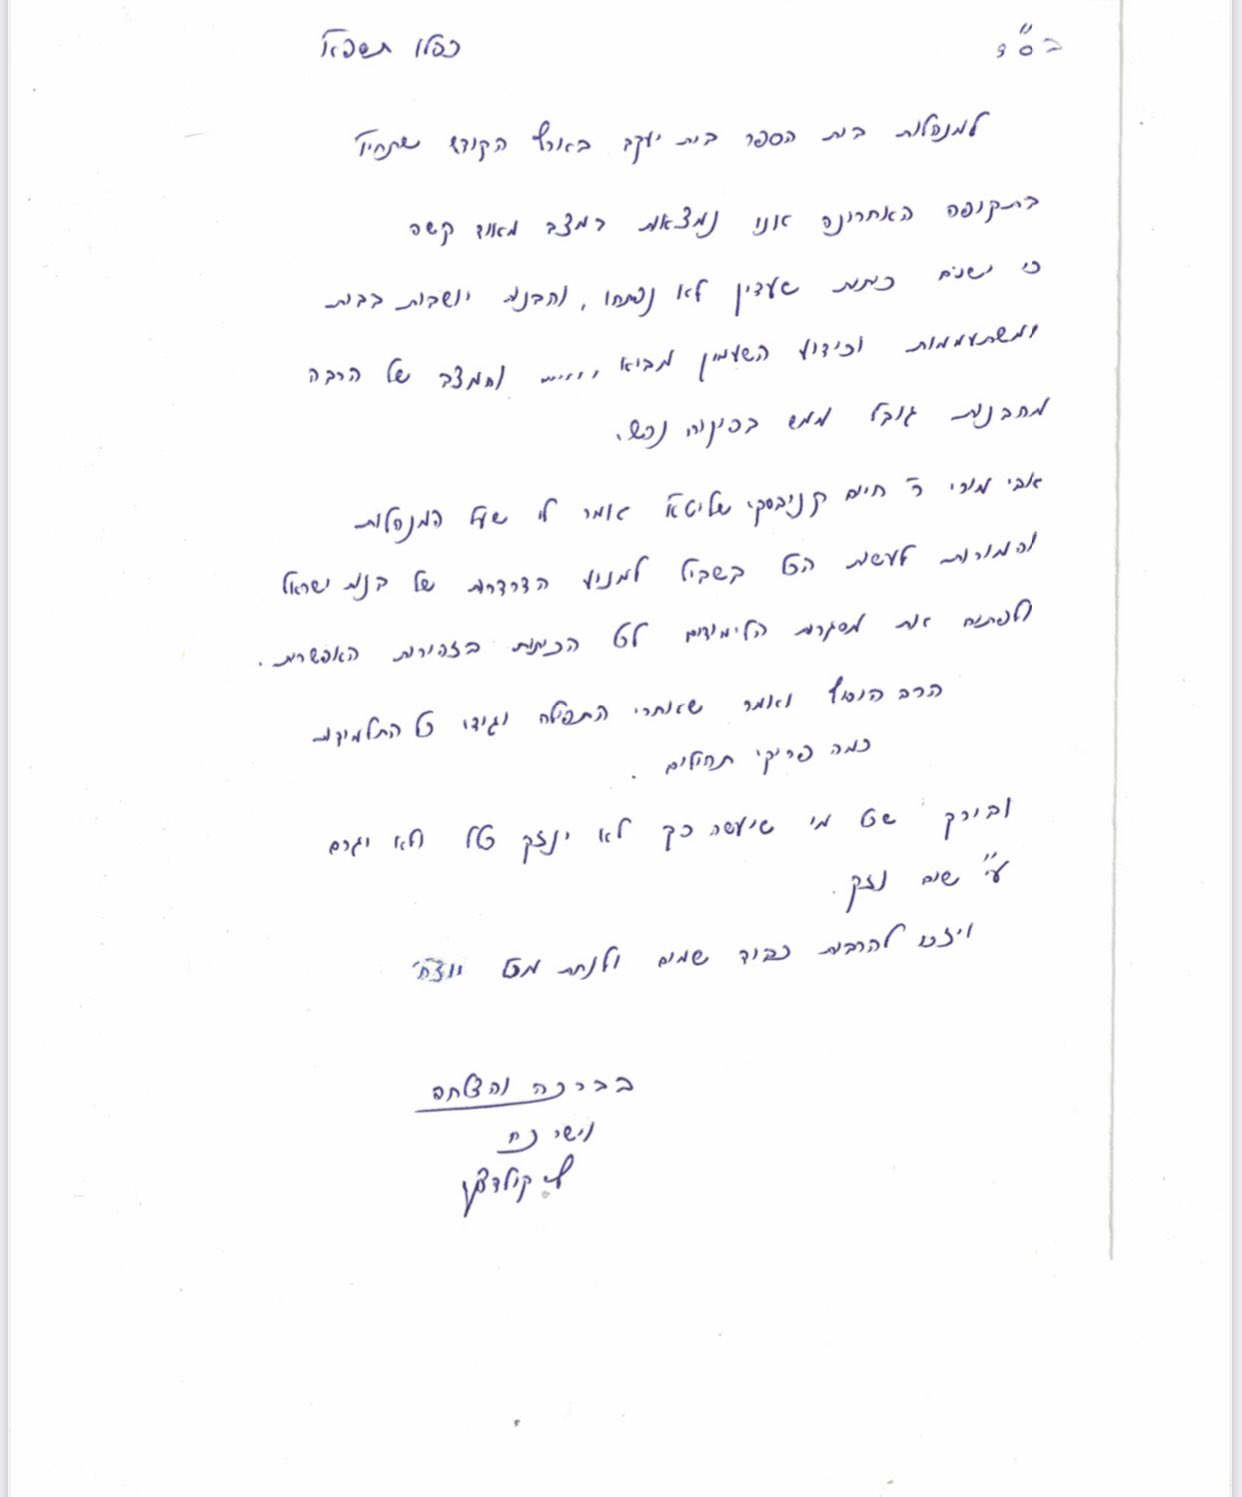 בס"ד
כסלו תשפ"א
למנהלות בית הספר בית יעקב בארץ הקודש שתחי'
בתקופה האחרונה אנו נמצאות במצב מאוד קשה
כי ישנם כיתות שעדיין לא נפתחו, והבנות יושבות בבית
ומשתעממות וכידוע השעמום מביא ...... והמצב של הרבה
מהבנות גובל ממש בפיקוח נפש.
אבי מורי ר' חיים קניבסקי שליט"א אומר לי שעל המנהלות
והמורות לעשות הכל בשביל למנוע הדרדרות של בנות ישראל
ולפתוח את מסגרת הלימודים לכל הכיתות בזהירות האפשרית.
הרב הוסיף ואמר שאחרי התפילה יגידו כל התלמידות
כמה פרקי תהילים.
ובירך שכל מי שיעשה כך לא ינזק כלל ולא יגרם
ע"י שום נזק.
ויזכו להרבות כבוד שמים ולנחת מכל יוצ"ח
בברכה והצלחה
ויישר כח
קולדצקי